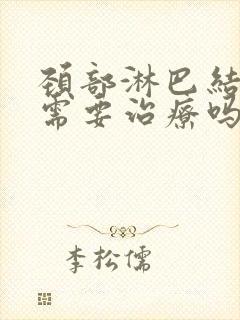 颈部淋巴结
需要治疗吗
李松儒